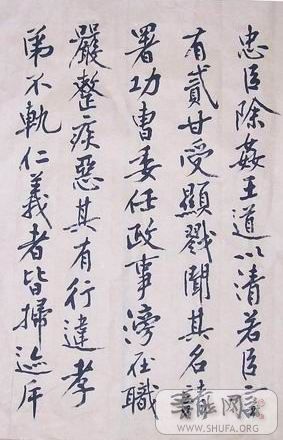 忠臣除姦王道以清若臣言
有貳甘受顯戮聞其名請
署功曹委任政事滂在職
嚴整疾惡其有行違孝
弟不軌仁義者皆掃迹斥
WWW.SHUFA.ORG